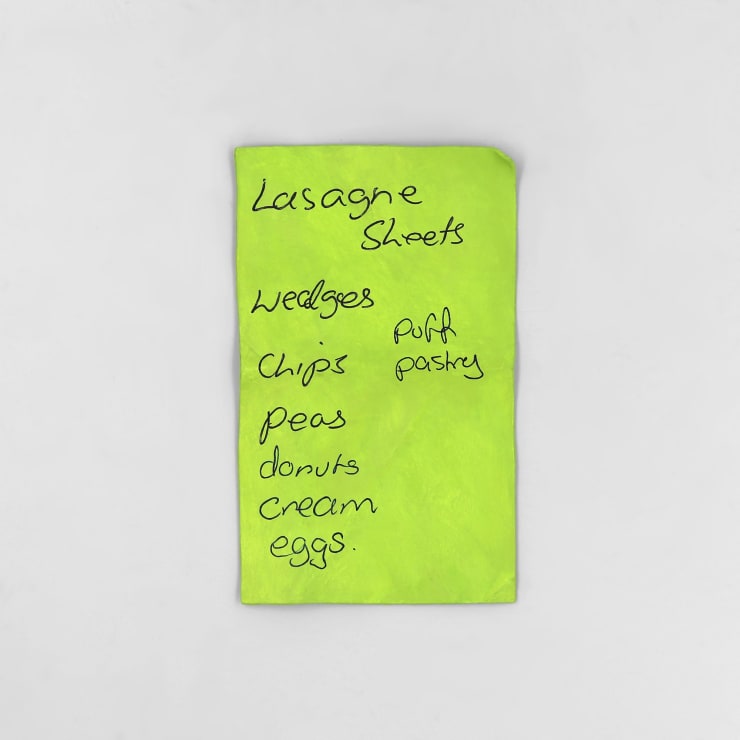 Lasagne
Sheets
Wedges
puff
Chips
pastry
peas
donuts
cream
eggs.